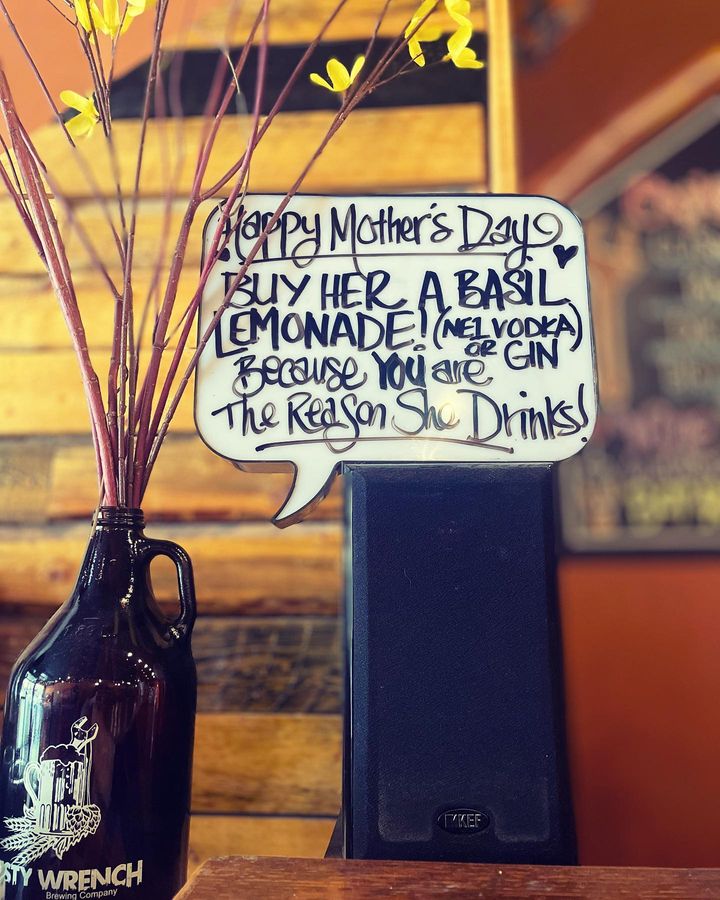 Happy Mother's Day
BUY HER A BASIL
LEMONADE! (NE1 VODKA)
OR GIN
Because YOU are
The Reason She Drinks!
KEF
STY WRENCH
Brewing Company